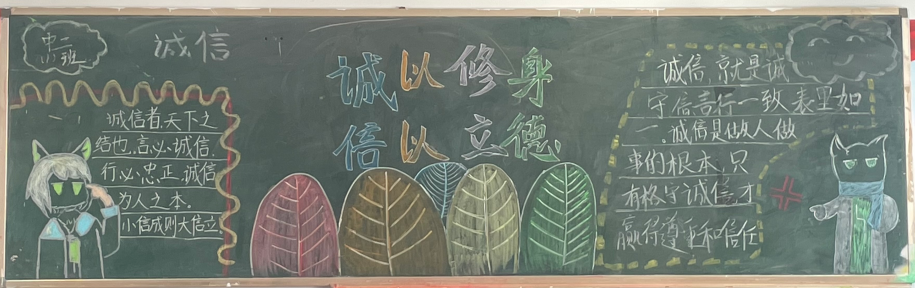 中二
班
诚信
诚以修身
信以立德
诚信者,天下之
结也,言必诚信,
行必忠正,诚信
为人之本.
小信成则大信立
诚信,就是诚
守信言行一致表里如
一.诚信是做人做
事的根本,只
有格守诚信,才
赢得尊重和信任